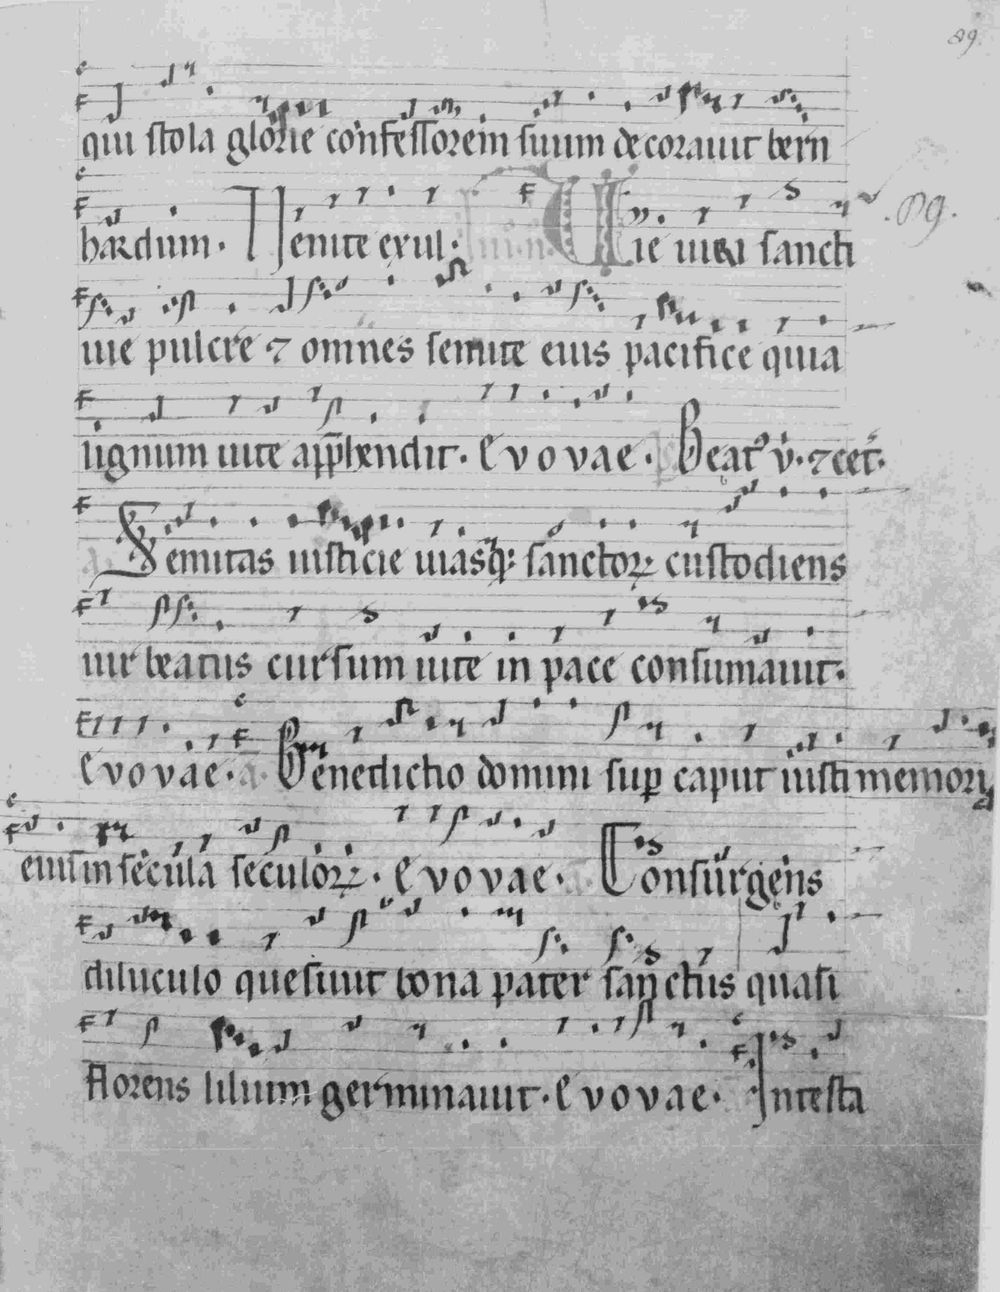 89.
qui stola glorie confessorem suum decorauit bern
hardum. Uenite exul. Uie uiri sancti
.89.
uie pulcre ⁊ omnes semite eius pacifice quia
lignum uite app̄hendit. Evovae. Beat᷒ v̇. ⁊ceť.
Semitas iusticie uiasq; sanctoꝝ custodiens
uir beatus cursum uite in pace consumauit.
Evovae. Benedictio domini suꝑ caput iusti memori
a
eius in secula seculoꝝ. Evovae. Consurgens
diluculo quesiuit bona pater sanctus quasi
florens lilium germinauit. Evovae. Intesta